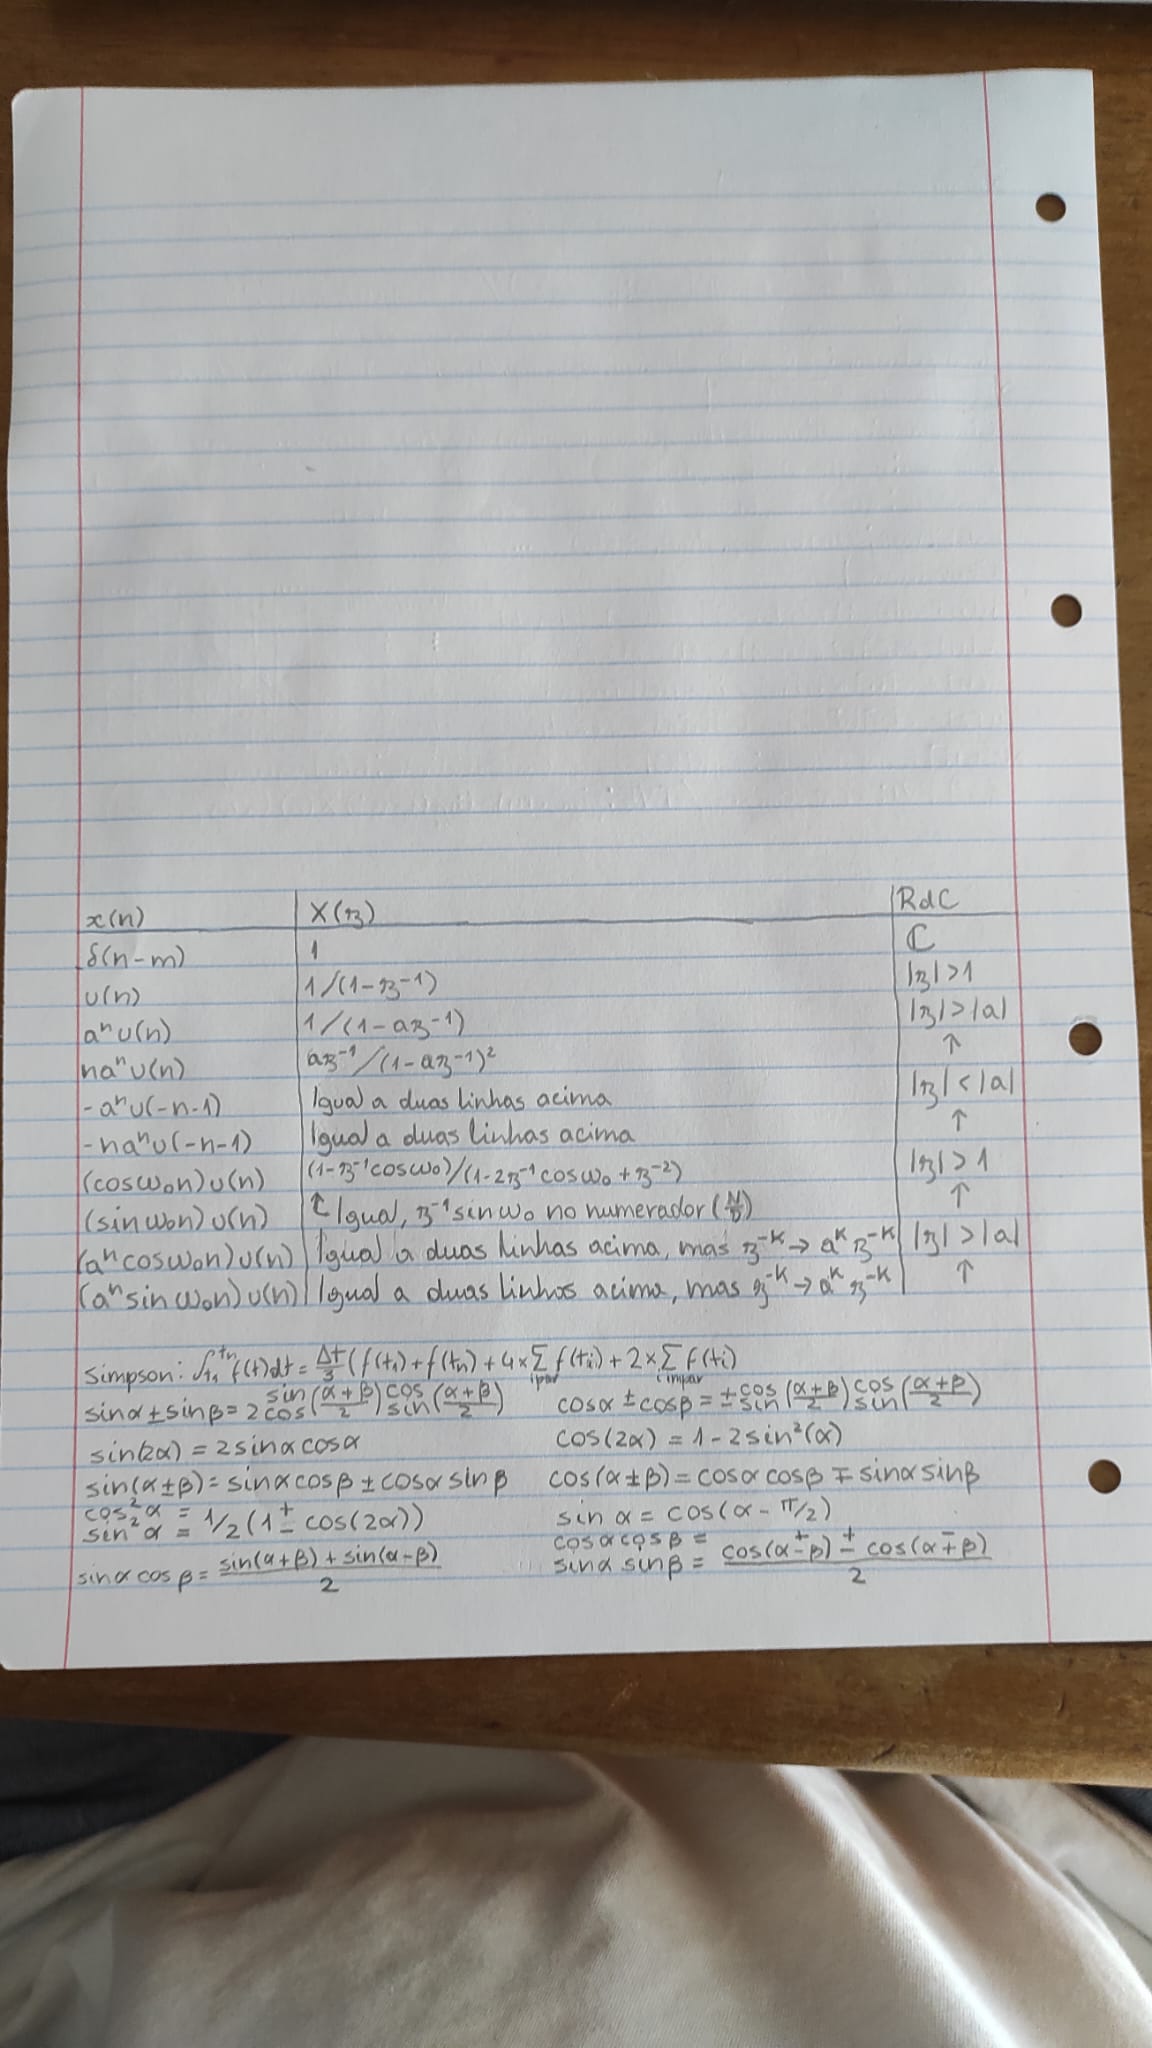 x(n) X(z) RdC
δ(n-m) 1 ℂ
u(n) 1/(1-z⁻¹) |z|>1
aⁿu(n) 1/(1-az⁻¹) |z|>|a|
naⁿu(n) az⁻¹/(1-az⁻¹)² ↑
-aⁿu(-n-1) Igual a duas linhas acima |z|<|a|
-naⁿu(-n-1) Igual a duas linhas acima ↑
(cosω₀n)u(n) (1-z⁻¹cosω₀)/(1-2z⁻¹cosω₀+z⁻²) |z|>1
(sinω₀n)u(n) ↑ Igual, z⁻¹sinω₀ no numerador (N/D) ↑
(aⁿcosω₀n)u(n) Igual a duas linhas acima, mas z⁻ᴷ→aᴷz⁻ᴷ |z|>|a|
(aⁿsinω₀n)u(n) Igual a duas linhas acima, mas z⁻ᴷ→aᴷz⁻ᴷ ↑
Simpson: ∫_{t₁}^{tₙ} f(t)dt = Δt/3 (f(t₁)+f(tₙ)+4×∑_{i par} f(tᵢ)+2×∑_{i ímpar} f(tᵢ)
sinα±sinβ = 2 sin/cos ((α+β)/2) cos/sin ((α+β)/2) cosα±cosβ = ± cos/sin ((α+β)/2) cos/sin ((α+β)/2)
sin(2α) = 2sinαcosα cos(2α) = 1-2sin²(α)
sin(α±β) = sinαcosβ±cosαsinβ cos(α±β) = cosαcosβ∓sinαsinβ
cos²α =
sin²α = 1/2(1±cos(2α)) sinα = cos(α-π/2)
cosαcosβ =
sinαcosβ = (sin(α+β)+sin(α-β))/2 sinαsinβ = (cos(α±β)±cos(α∓β))/2